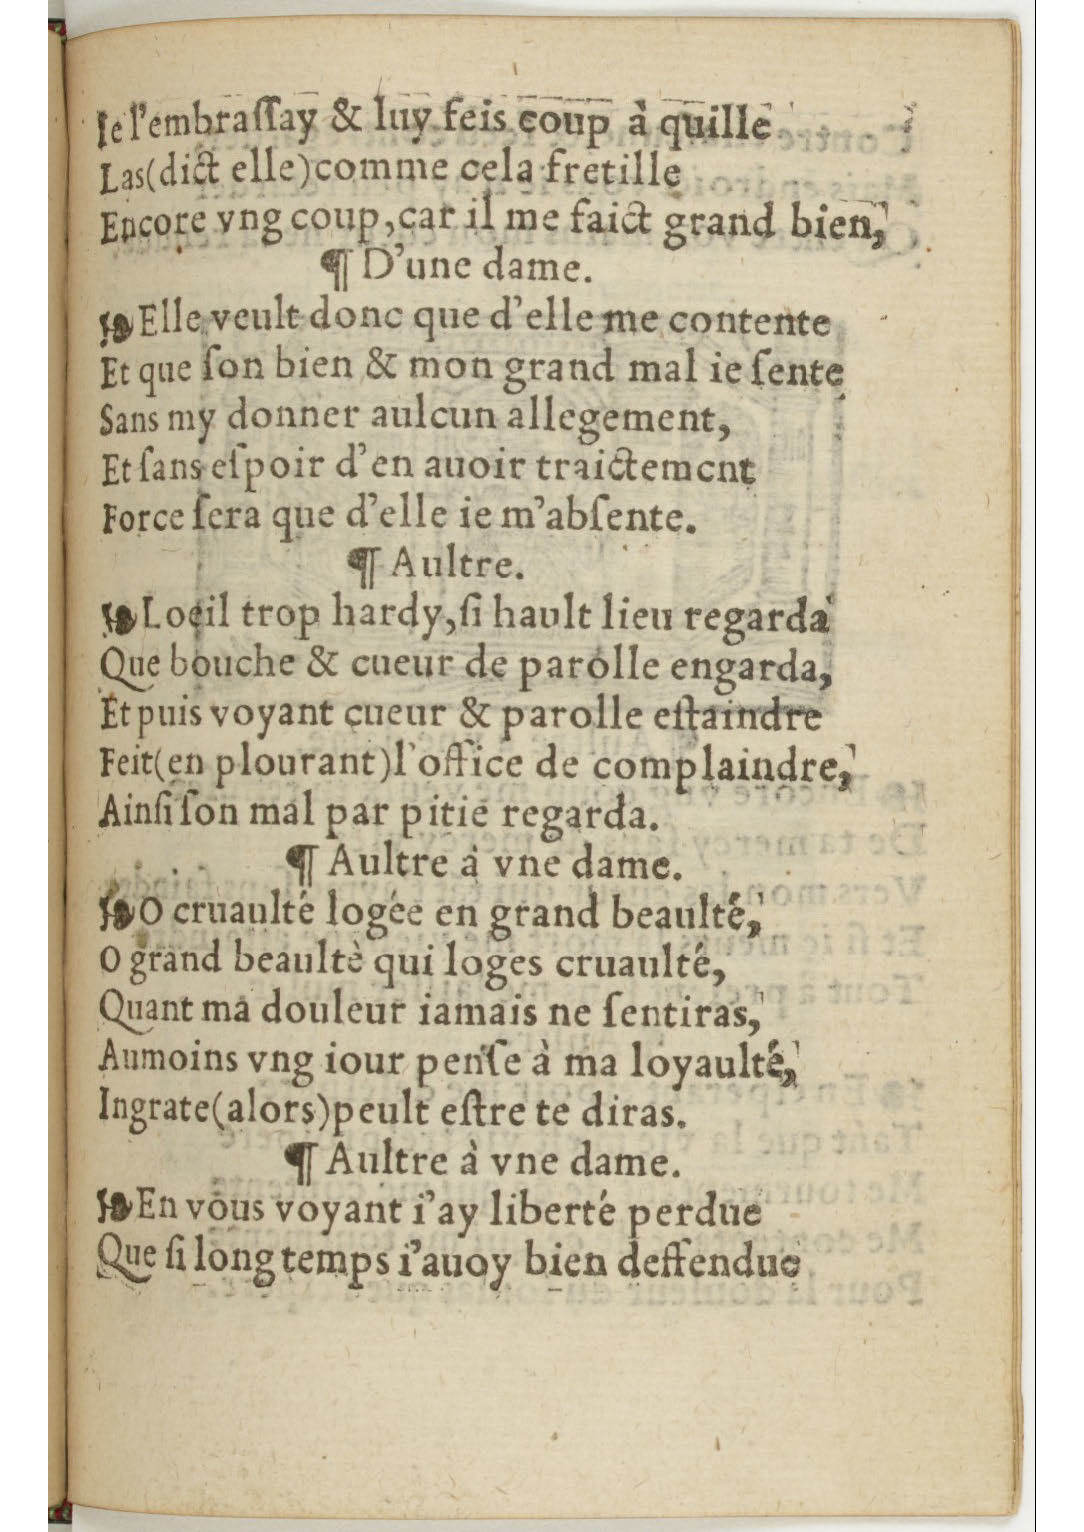 Ie l'embraſſay & luy feis coup à quille
Las(dict elle)comme cela fretille
Encore vng coup,car il me faict grand bien,
¶ D'une dame.
❧ Elle veult donc que d'elle me contente
Et que ſon bien & mon grand mal ie ſente
Sans my donner aulcun allegement,
Et ſans eſpoir d'en auoir traictement
Force ſera que d'elle ie m'abſente.
¶ Aultre.
❧ Loeil trop hardy,ſi hault lieu regarda
Que bouche & cueur de parolle engarda,
Et puis voyant cueur & parolle eſtaindre
Feit(en plourant)l'office de complaindre,
Ainſi ſon mal par pitie regarda.
¶ Aultre à vne dame.
❧ O cruaulté logée en grand beaulté,
O grand beaultè qui loges cruaulté,
Quant ma douleur iamais ne ſentiras,
Aumoins vng iour penſe à ma loyaulté,
Ingrate(alors)peult eſtre te diras.
¶ Aultre à vne dame.
❧ En vous voyant i'ay liberté perdue
Que ſi long temps i'auoy bien deffendue